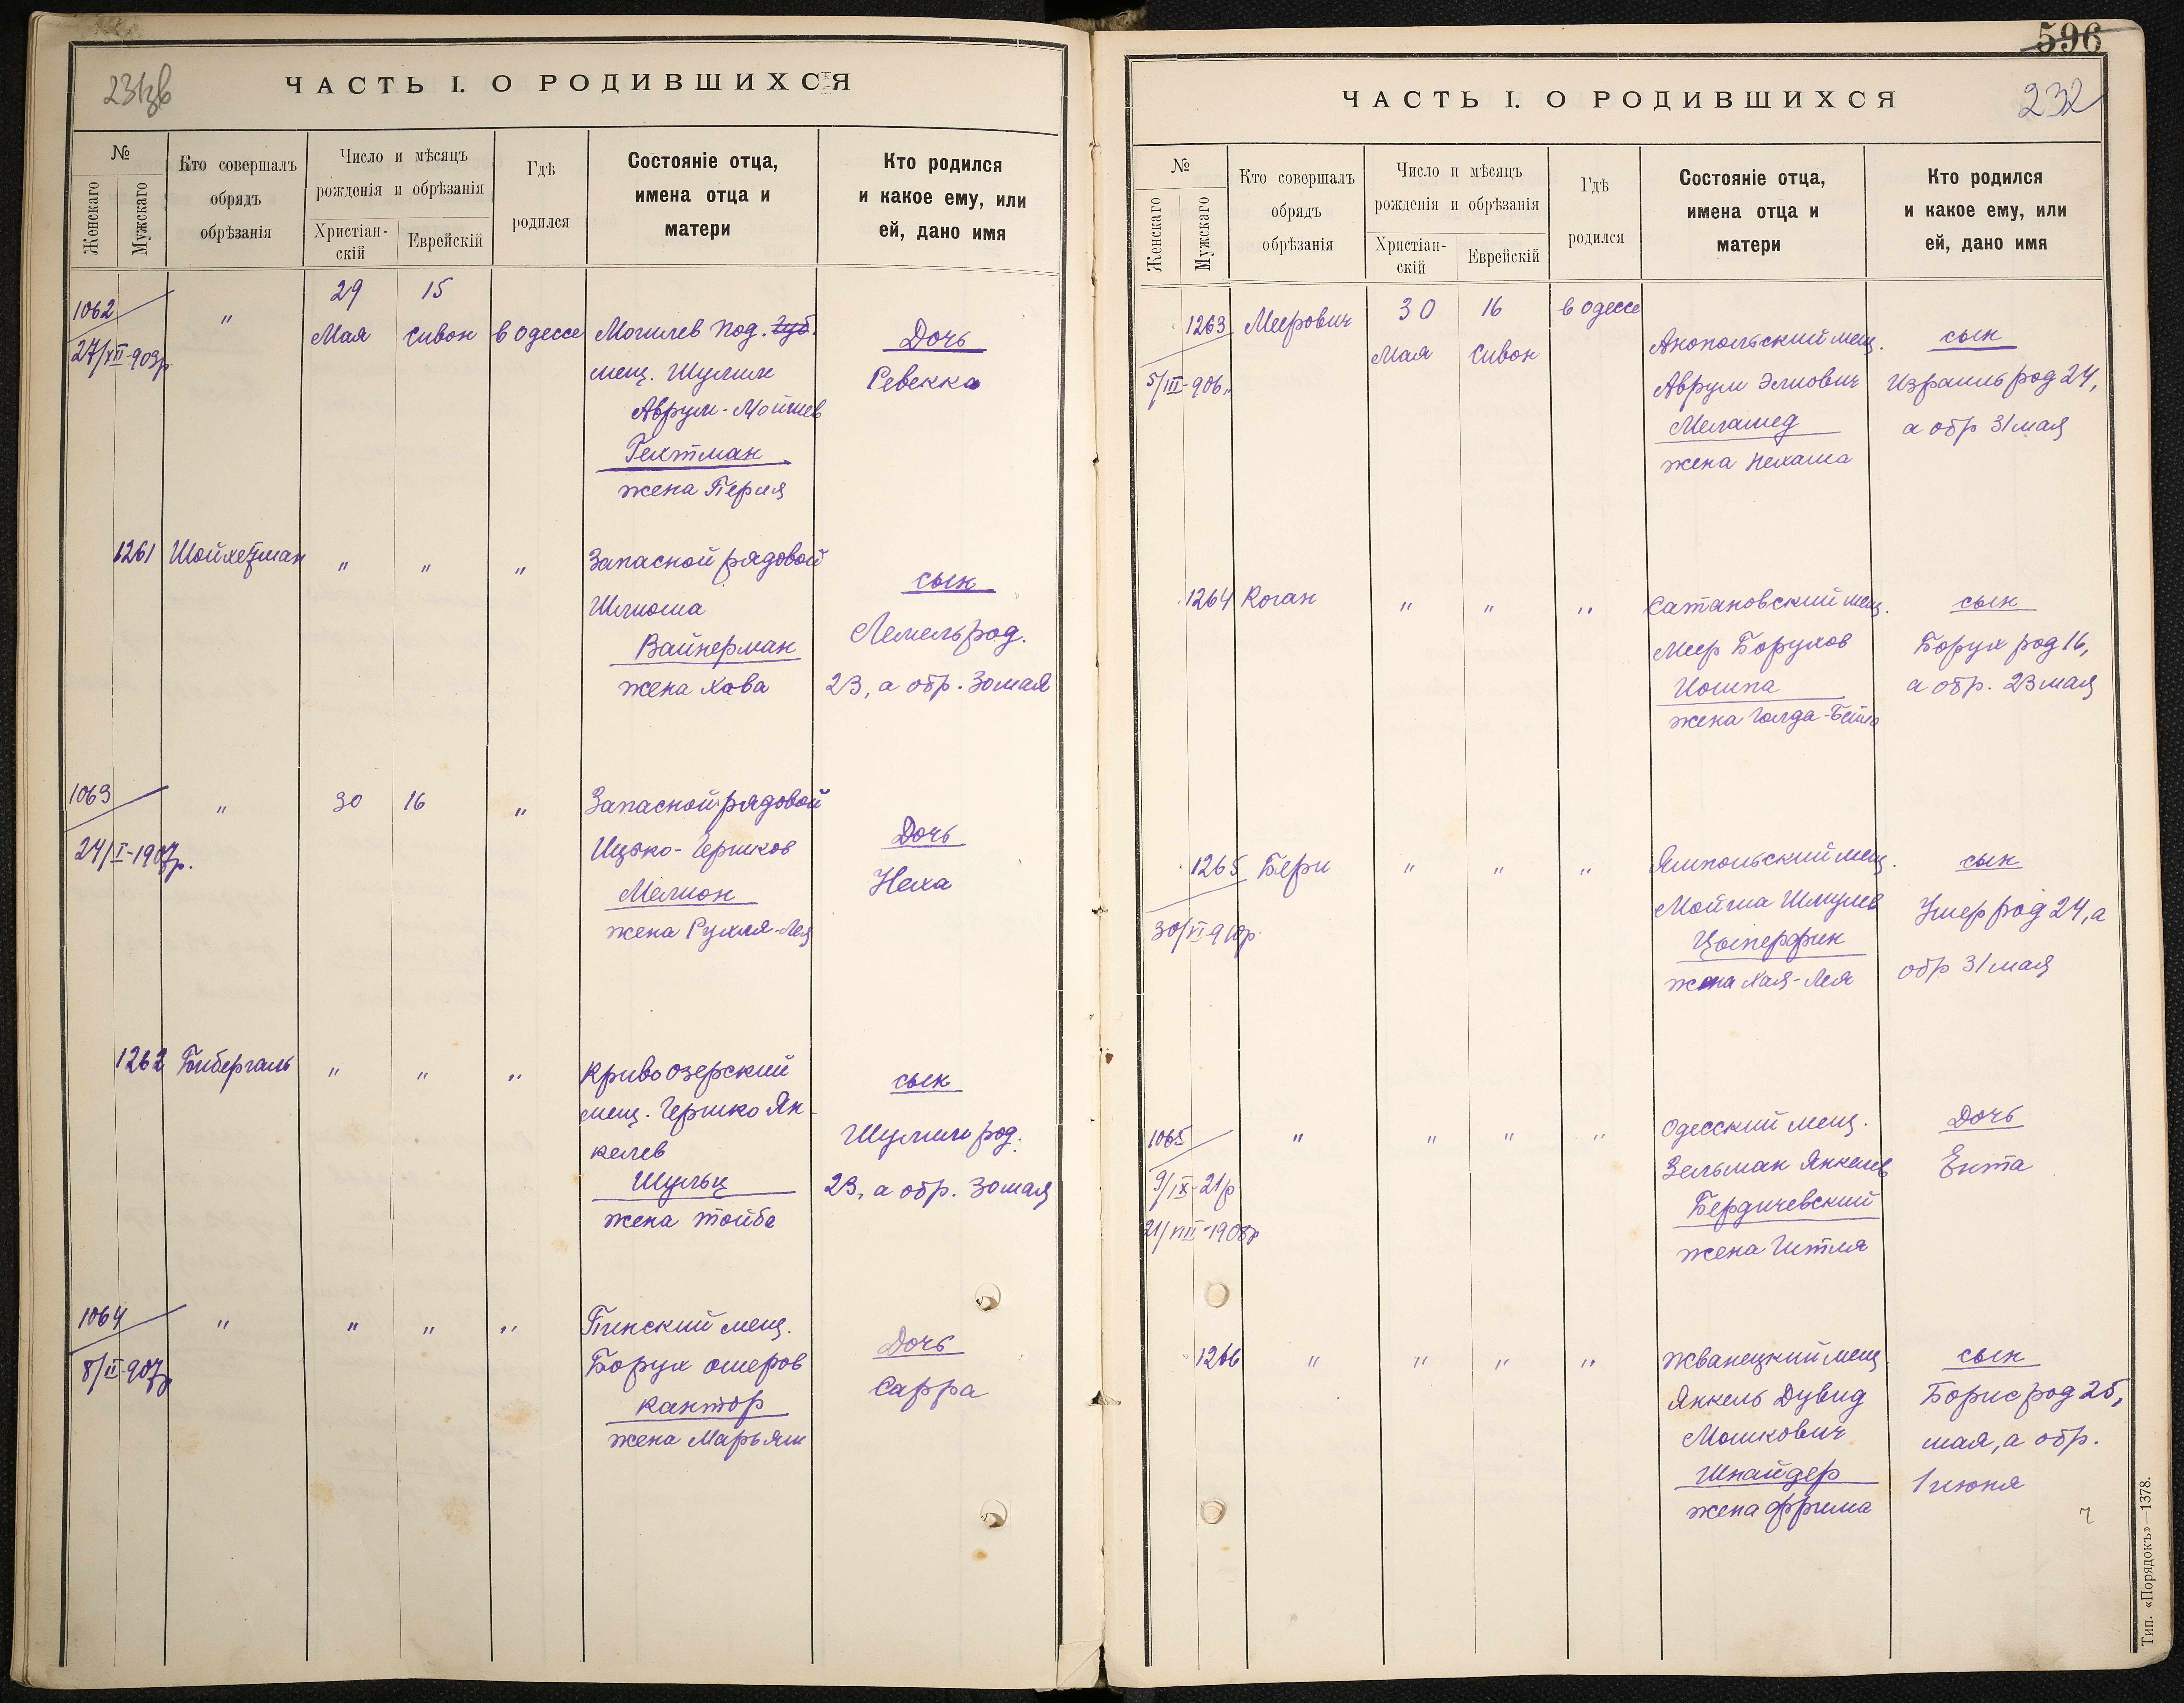 231зв
ЧАСТЬ I. О РОДИВШИХСЯ
№
Женскаго
Мужскаго
Кто совершалъ
обрядъ
обрѣзанія
Число и мѣсяцъ
рожденія и обрѣзанія
Христіан-
скій
Еврейскій
Гдѣ
родился
Состояніе отца,
имена отца и
матери
Кто родился
и какое ему, или
ей, дано имя
1062
27/XII-903р
"
29
Мая
15
Сивон
в Одессе
Могилев под. губ.
мещ. Шулим
Аврум-Мойшев
Гехтман
жена Перля
Дочь
Ревекка
1261
Шойхетман
"
"
"
Запасной рядовой
Шлиома
Вайнерман
жена Хава
сын
Лемель род.
23, а обр. 30 мая
1063
24/I-1907р.
"
30
16
"
Запасной рядовой
Ицько-Гершков
Мелион
жена Рухля-Лея
Дочь
Неха
1262
Бибергаль
"
"
"
Кривоозерский
мещ. Гершко Ян-
келев
Шульц
жена Тойба
сын
Шулим род.
23, а обр. 30 мая
1064
8/II-907р
"
"
"
"
Пинский мещ.
Борух Ошеров
Кантор
жена Марьям
Дочь
Сарра
596
232
ЧАСТЬ I. О РОДИВШИХСЯ
№
Женскаго
Мужскаго
Кто совершалъ
обрядъ
обрѣзанія
Число и мѣсяцъ
рожденія и обрѣзанія
Христіан-
скій
Еврейскій
Гдѣ
родился
Состояніе отца,
имена отца и
матери
Кто родился
и какое ему, или
ей, дано имя
1263
5/III-906
Меерович
30
Мая
16
Сивон
в Одессе
Анопольский мещ.
Аврум Элиович
Меламед
жена Нехама
сын
Израиль род 24,
а обр 31 мая
1264
Коган
"
"
"
Сатановский мещ.
Меер Борухов
Иомпа
жена Голда-Бейла
сын
Борух род 16,
а обр. 23 мая
1265
30/XI-910р
Бери
"
"
"
Ямпольский мещ.
Мойша Шмулев
Цыперфин
жена Хая-Лея
сын
Ушер род 24, а
обр 31 мая
1065
9/IX-21р
21/VIII-1908р
"
"
"
"
Одесский мещ.
Зельман Янкелев
Бердичевский
жена Гитля
Дочь
Ента
1266
"
"
"
"
Жванецкий мещ.
Янкель Дувид
Мошкович
Шнайдер
жена Фрима
сын
Борис род 25,
мая, а обр.
1 июня
Тип. «Порядокъ»—1378.